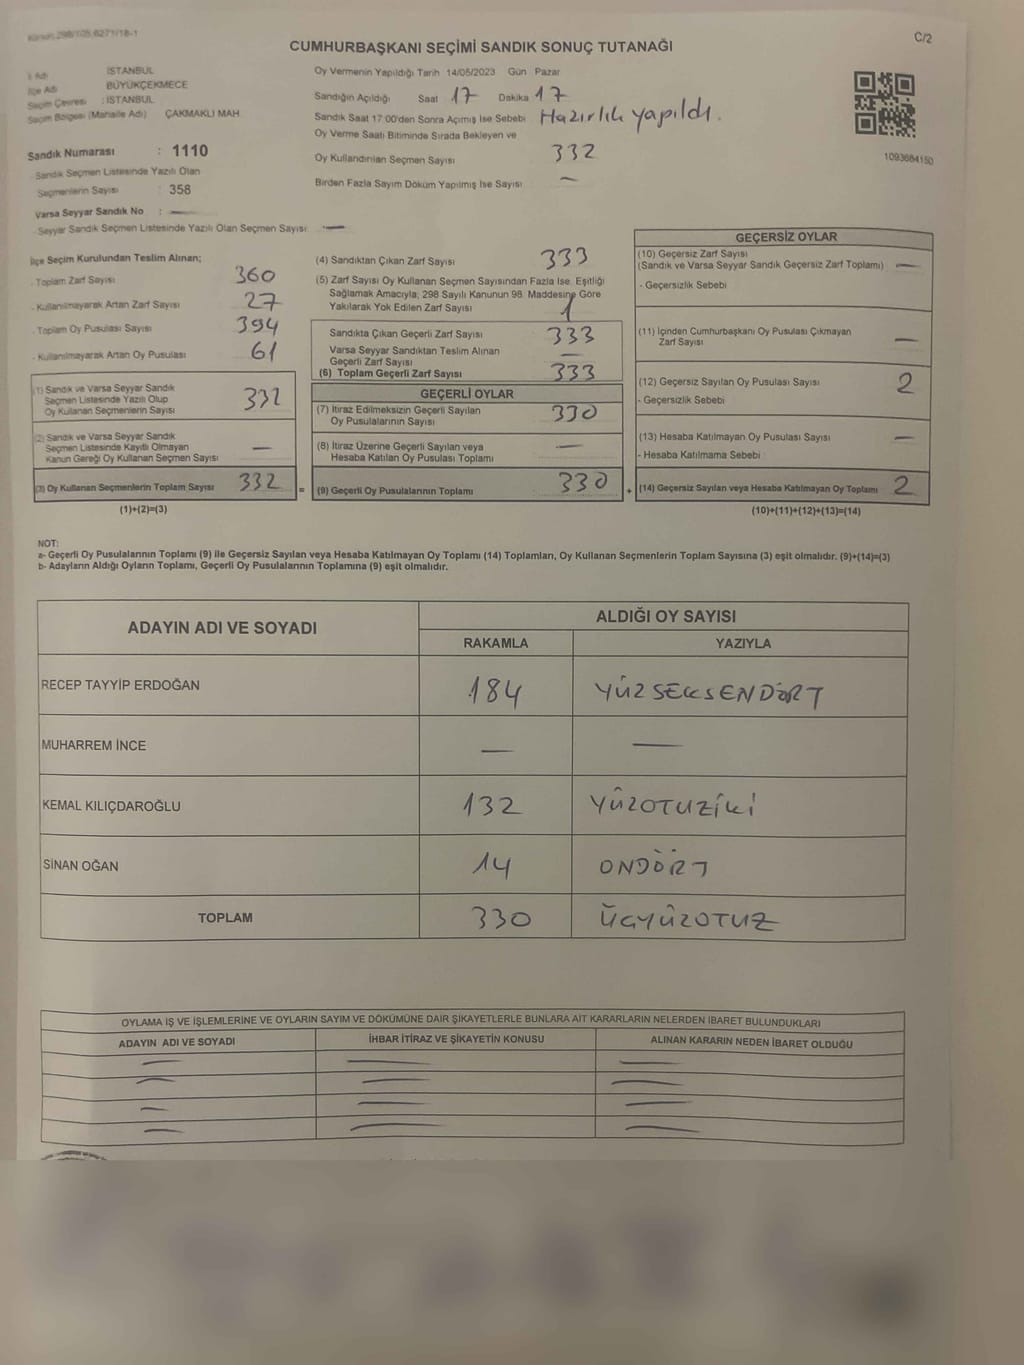 Kanun:298/105,6271/18-1
C/2
CUMHURBAŞKANI SEÇİMİ SANDIK SONUÇ TUTANAĞI
İl Adı : İSTANBUL
İlçe Adı BÜYÜKÇEKMECE
Seçim Çevresi : İSTANBUL
Seçim Bölgesi (Mahalle Adı) ÇAKMAKLI MAH
Sandık Numarası : 1110
Sandık Seçmen Listesinde Yazılı Olan
Seçmenlerin Sayısı : 358
Varsa Seyyar Sandık No : —
Seyyar Sandık Seçmen Listesinde Yazılı Olan Seçmen Sayısı : —
Oy Vermenin Yapıldığı Tarih 14/05/2023 Gün Pazar
Sandığın Açıldığı Saat 17 Dakika 17
Sandık Saat 17:00'den Sonra Açımış İse Sebebi Hazırlık yapıldı.
Oy Verme Saati Bitiminde Sırada Bekleyen ve
Oy Kullandırılan Seçmen Sayısı 332
Birden Fazla Sayım Döküm Yapılmış İse Sayısı —
1093684150
İlçe Seçim Kurulundan Teslim Alınan;
- Toplam Zarf Sayısı 360
- Kullanılmayarak Artan Zarf Sayısı 27
- Toplam Oy Pusulası Sayısı 394
- Kullanılmayarak Artan Oy Pusulası 61
(1) Sandık ve Varsa Seyyar Sandık
Seçmen Listesinde Yazılı Olup
Oy Kullanan Seçmenlerin Sayısı 332
(2) Sandık ve Varsa Seyyar Sandık
Seçmen Listesinde Kayıtlı Olmayan
Kanun Gereği Oy Kullanan Seçmen Sayısı —
(3) Oy Kullanan Seçmenlerin Toplam Sayısı 332 =
(1)+(2)=(3)
(4) Sandıktan Çıkan Zarf Sayısı 333
(5) Zarf Sayısı Oy Kullanan Seçmen Sayısından Fazla İse, Eşitliği
Sağlamak Amacıyla; 298 Sayılı Kanunun 98. Maddesine Göre
Yakılarak Yok Edilen Zarf Sayısı 1
Sandıkta Çıkan Geçerli Zarf Sayısı 333
Varsa Seyyar Sandıktan Teslim Alınan
Geçerli Zarf Sayısı —
(6) Toplam Geçerli Zarf Sayısı 333
GEÇERLİ OYLAR
(7) İtiraz Edilmeksizin Geçerli Sayılan
Oy Pusulalarının Sayısı 330
(8) İtiraz Üzerine Geçerli Sayılan veya
Hesaba Katılan Oy Pusulası Toplamı —
(9) Geçerli Oy Pusulalarının Toplamı 330 +
GEÇERSİZ OYLAR
(10) Geçersiz Zarf Sayısı
(Sandık ve Varsa Seyyar Sandık Geçersiz Zarf Toplamı) —
- Geçersizlik Sebebi
(11) İçinden Cumhurbaşkanı Oy Pusulası Çıkmayan
Zarf Sayısı —
(12) Geçersiz Sayılan Oy Pusulası Sayısı 2
- Geçersizlik Sebebi
(13) Hesaba Katılmayan Oy Pusulası Sayısı —
- Hesaba Katılmama Sebebi
(14) Geçersiz Sayılan veya Hesaba Katılmayan Oy Toplamı 2
(10)+(11)+(12)+(13)=(14)
NOT:
a- Geçerli Oy Pusulalarının Toplamı (9) ile Geçersiz Sayılan veya Hesaba Katılmayan Oy Toplamı (14) Toplamları, Oy Kullanan Seçmenlerin Toplam Sayısına (3) eşit olmalıdır. (9)+(14)=(3)
b- Adayların Aldığı Oyların Toplamı, Geçerli Oy Pusulalarının Toplamına (9) eşit olmalıdır.
ADAYIN ADI VE SOYADI
ALDIĞI OY SAYISI
RAKAMLA YAZIYLA
RECEP TAYYİP ERDOĞAN 184 YÜZSEKSENDÖRT
MUHARREM İNCE — —
KEMAL KILIÇDAROĞLU 132 YÜZOTUZİKİ
SİNAN OĞAN 14 ONDÖRT
TOPLAM 330 ÜÇYÜZOTUZ
OYLAMA İŞ VE İŞLEMLERİNE VE OYLARIN SAYIM VE DÖKÜMÜNE DAİR ŞİKAYETLERLE BUNLARA AİT KARARLARIN NELERDEN İBARET BULUNDUKLARI
ADAYIN ADI VE SOYADI İHBAR İTİRAZ VE ŞİKAYETİN KONUSU ALINAN KARARIN NEDEN İBARET OLDUĞU
— — —
— — —
— — —
— — —